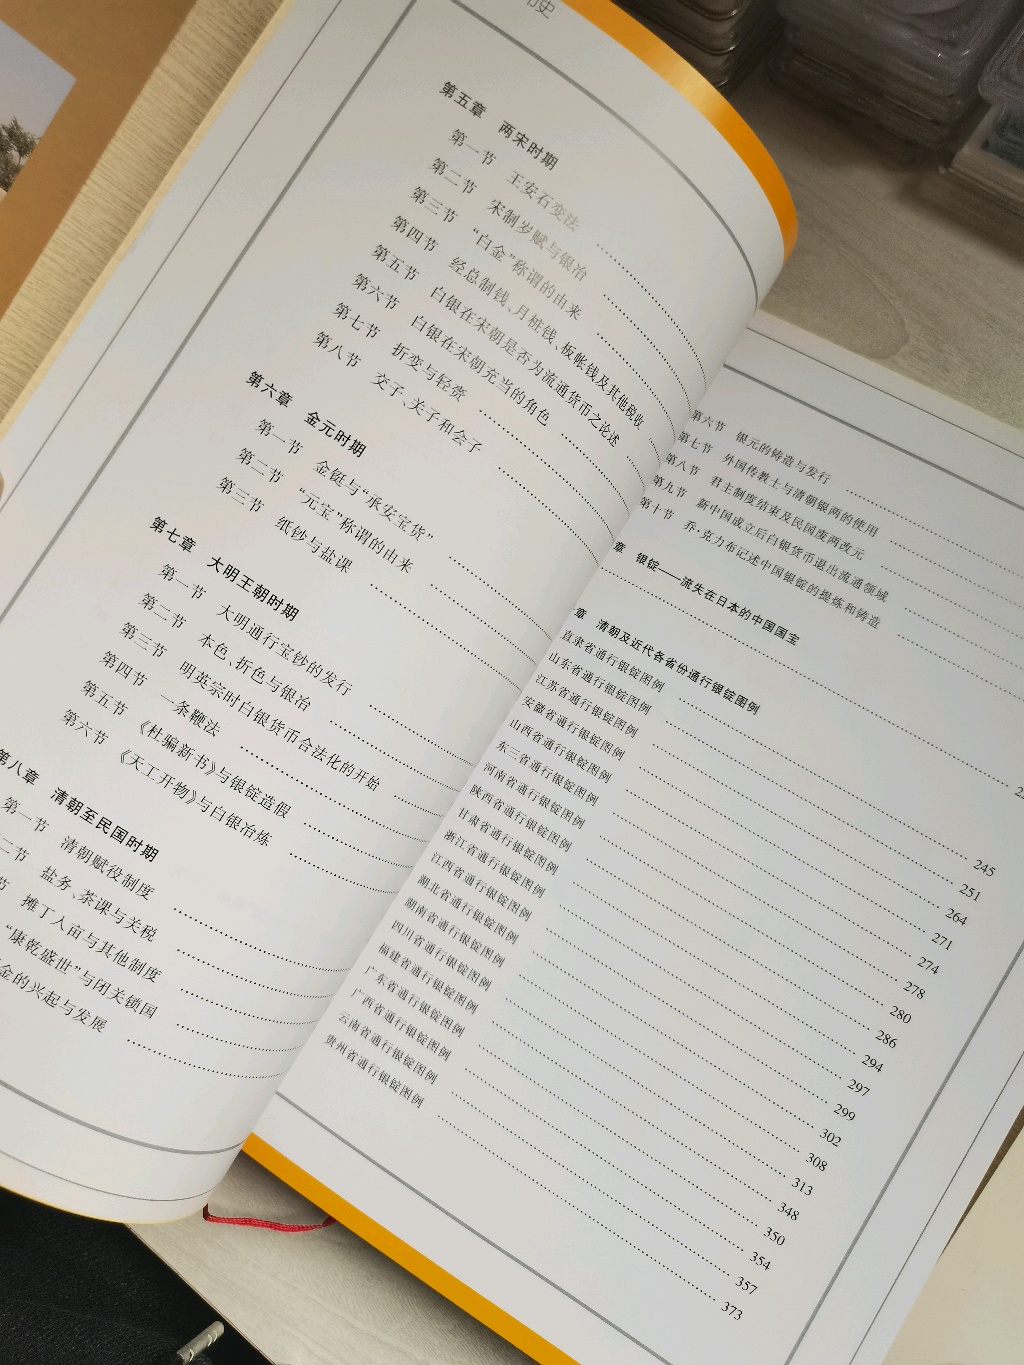 史
第五章 两宋时期
第一节 王安石变法
第二节 宋制岁赋与银冶
第三节 “白金”称谓的由来
第四节 经总制钱、月桩钱、板帐钱及其他税收
第五节 白银在宋朝是否为流通货币之论述
第六节 白银在宋朝充当的角色
第七节 折变与轻赍
第八节 交子、关子和会子
第六章 金元时期
第一节 金铤与“承安宝货”
第二节 “元宝”称谓的由来
第三节 纸钞与盐课
第七章 大明王朝时期
第一节 大明通行宝钞的发行
第二节 本色、折色与银冶
第三节 明英宗时白银货币合法化的开始
第四节 一条鞭法
第五节 《杜骗新书》与银锭造假
第六节 《天工开物》与白银冶炼
第八章 清朝至民国时期
第一节 清朝赋役制度
二节 盐务、茶课与关税
节 摊丁入亩与其他制度
“康乾盛世”与闭关锁国
金的兴起与发展
第六节 银元的铸造与发行
第七节 外国传教士与清朝银两的使用
第八节 君主制度结束及民国废两改元
第九节 新中国成立后白银货币退出流通领域
第十节 乔·克力布记述中国银锭的提炼和铸造
章 银锭——流失在日本的中国国宝
章 清朝及近代各省份通行银锭图例
直隶省通行银锭图例 245
山东省通行银锭图例 251
江苏省通行银锭图例 264
安徽省通行银锭图例 271
山西省通行银锭图例 274
东三省通行银锭图例 278
河南省通行银锭图例 280
陕西省通行银锭图例 286
甘肃省通行银锭图例 294
浙江省通行银锭图例 297
江西省通行银锭图例 299
湖北省通行银锭图例 302
湖南省通行银锭图例 308
四川省通行银锭图例 313
福建省通行银锭图例 348
广东省通行银锭图例 350
广西省通行银锭图例 354
云南省通行银锭图例 357
贵州省通行银锭图例 373